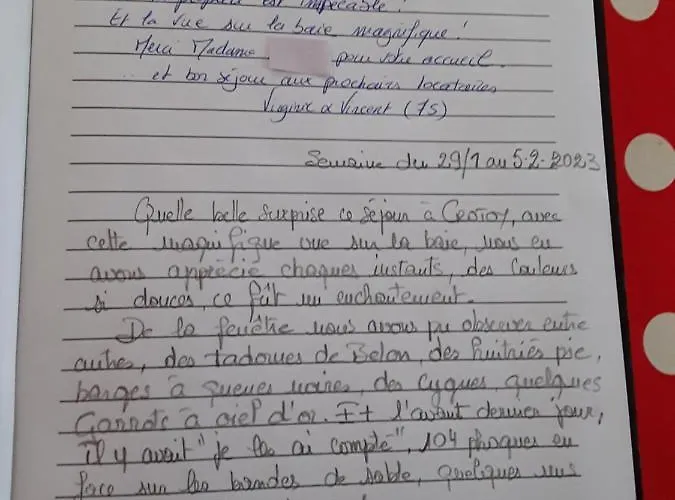 propreté est impeccable !
Et la vue sur la baie magnifique !
Merci Madame pour votre accueil.
et bon séjour aux prochains locataires
Virginie & Vincent (75)
Semaine du 29/1 au 5-2-2023
Quelle belle surprise ce séjour à Crotoy, avec
cette magnifique vue sur la baie, nous en
avons apprécié chaques instants, des couleurs
si douces, ce fût un enchantement.
De la fenêtre nous avons pu observer entre
autres, des tadornes de Belon, des huitriés pie,
barges à queues noires, des Cygnes, quelques
Garrots à oeil d'or. Et l'avant dernier jour,
il y avait "je les ai compté", 104 phoques en
face sur les bandes de sable, quelques uns